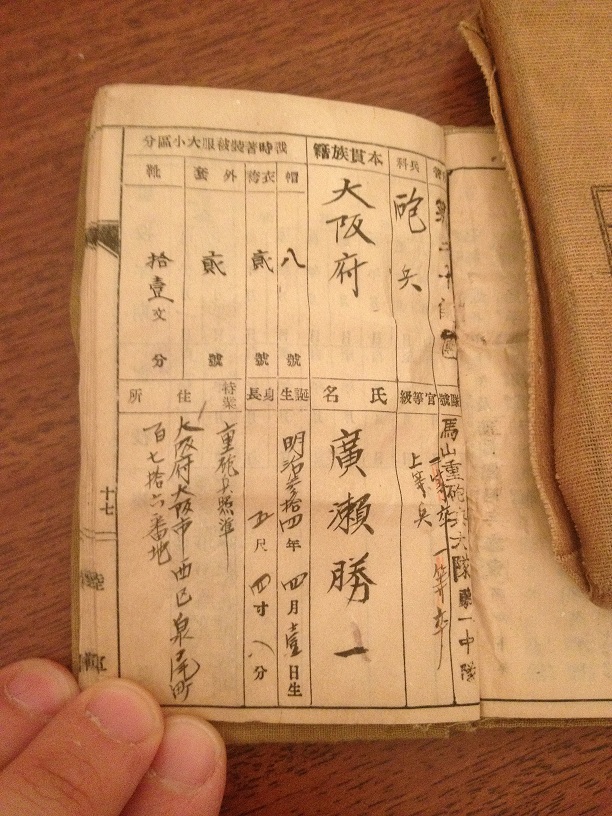 兵科
砲兵
本貫族籍
大阪府
戰時著裝被服大小區分
帽
八
號
衣袴
貳
號
外套
貳
號
靴
拾壹文
分
隊號
馬山重砲兵大隊第一中隊
官等級
一等卒
一等卒
上等兵
氏名
廣瀨勝一
誕生
明治參拾四年四月壹日生
身長
五尺四寸八分
特業
重砲兵照準
住所
大阪府大阪市西區泉尾町
百七拾六番地
十七